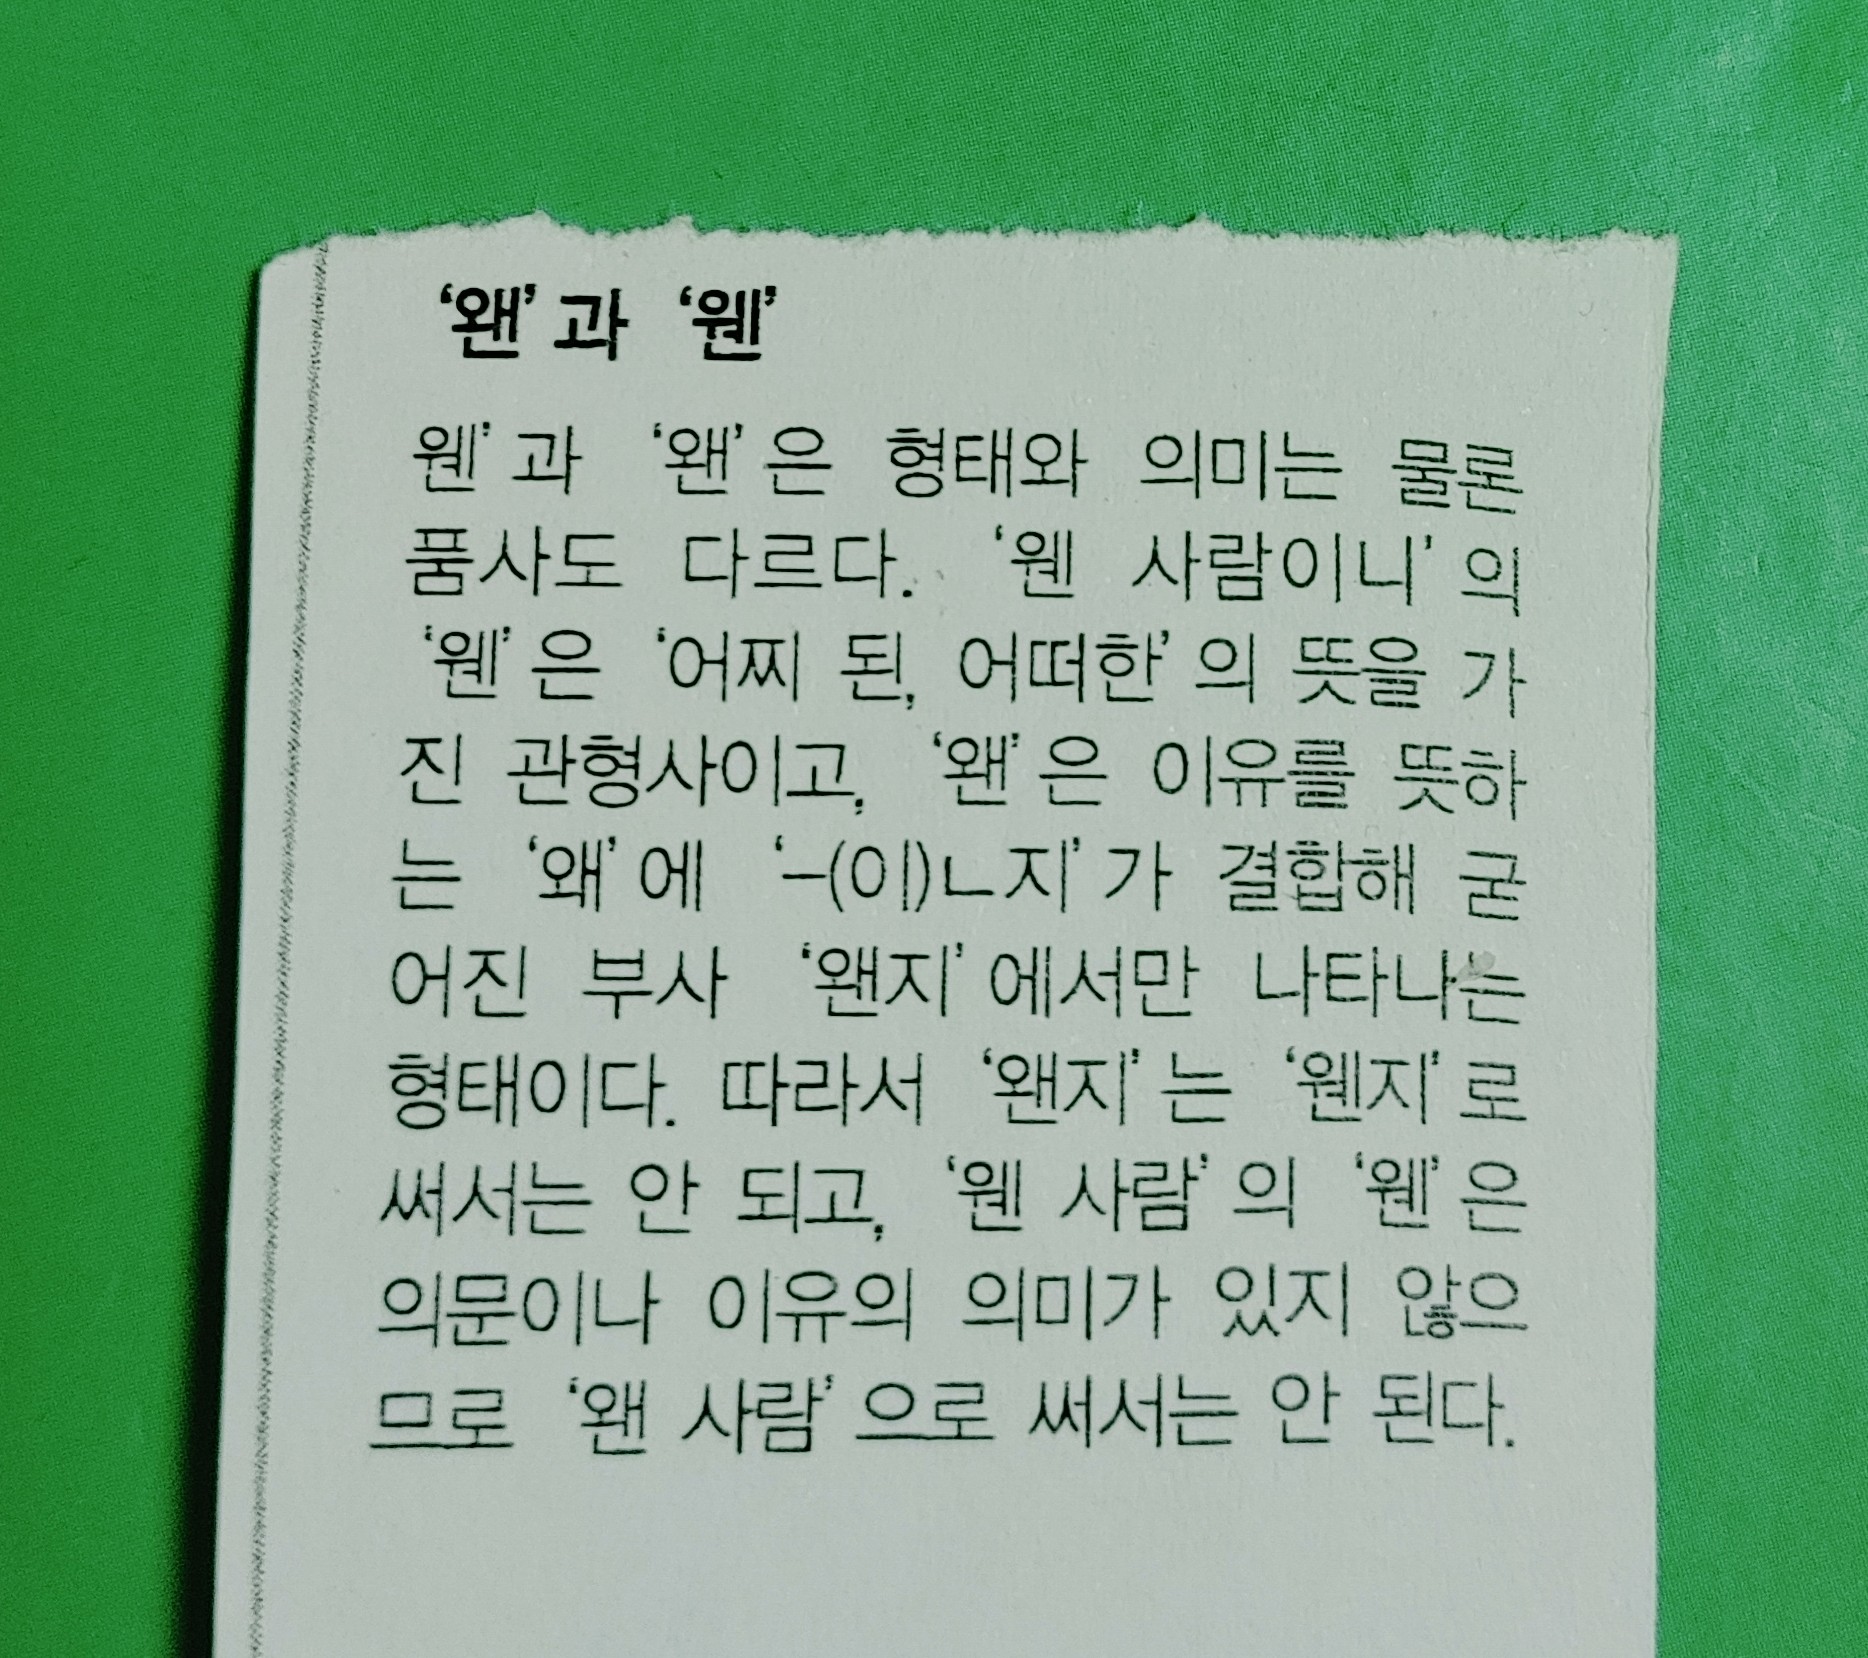 ‘왠’과 ‘웬’
웬’과 ‘왠’은 형태와 의미는 물론
품사도 다르다. ‘웬 사람이니’의
‘웬’은 ‘어찌 된, 어떠한’의 뜻을 가
진 관형사이고, ‘왠’은 이유를 뜻하
는 ‘왜’에 ‘-(이)ㄴ지’가 결합해 굳
어진 부사 ‘왠지’에서만 나타나는
형태이다. 따라서 ‘왠지’는 ‘웬지’로
써서는 안 되고, ‘웬 사람’의 ‘웬’은
의문이나 이유의 의미가 있지 않으
므로 ‘왠 사람’으로 써서는 안 된다.